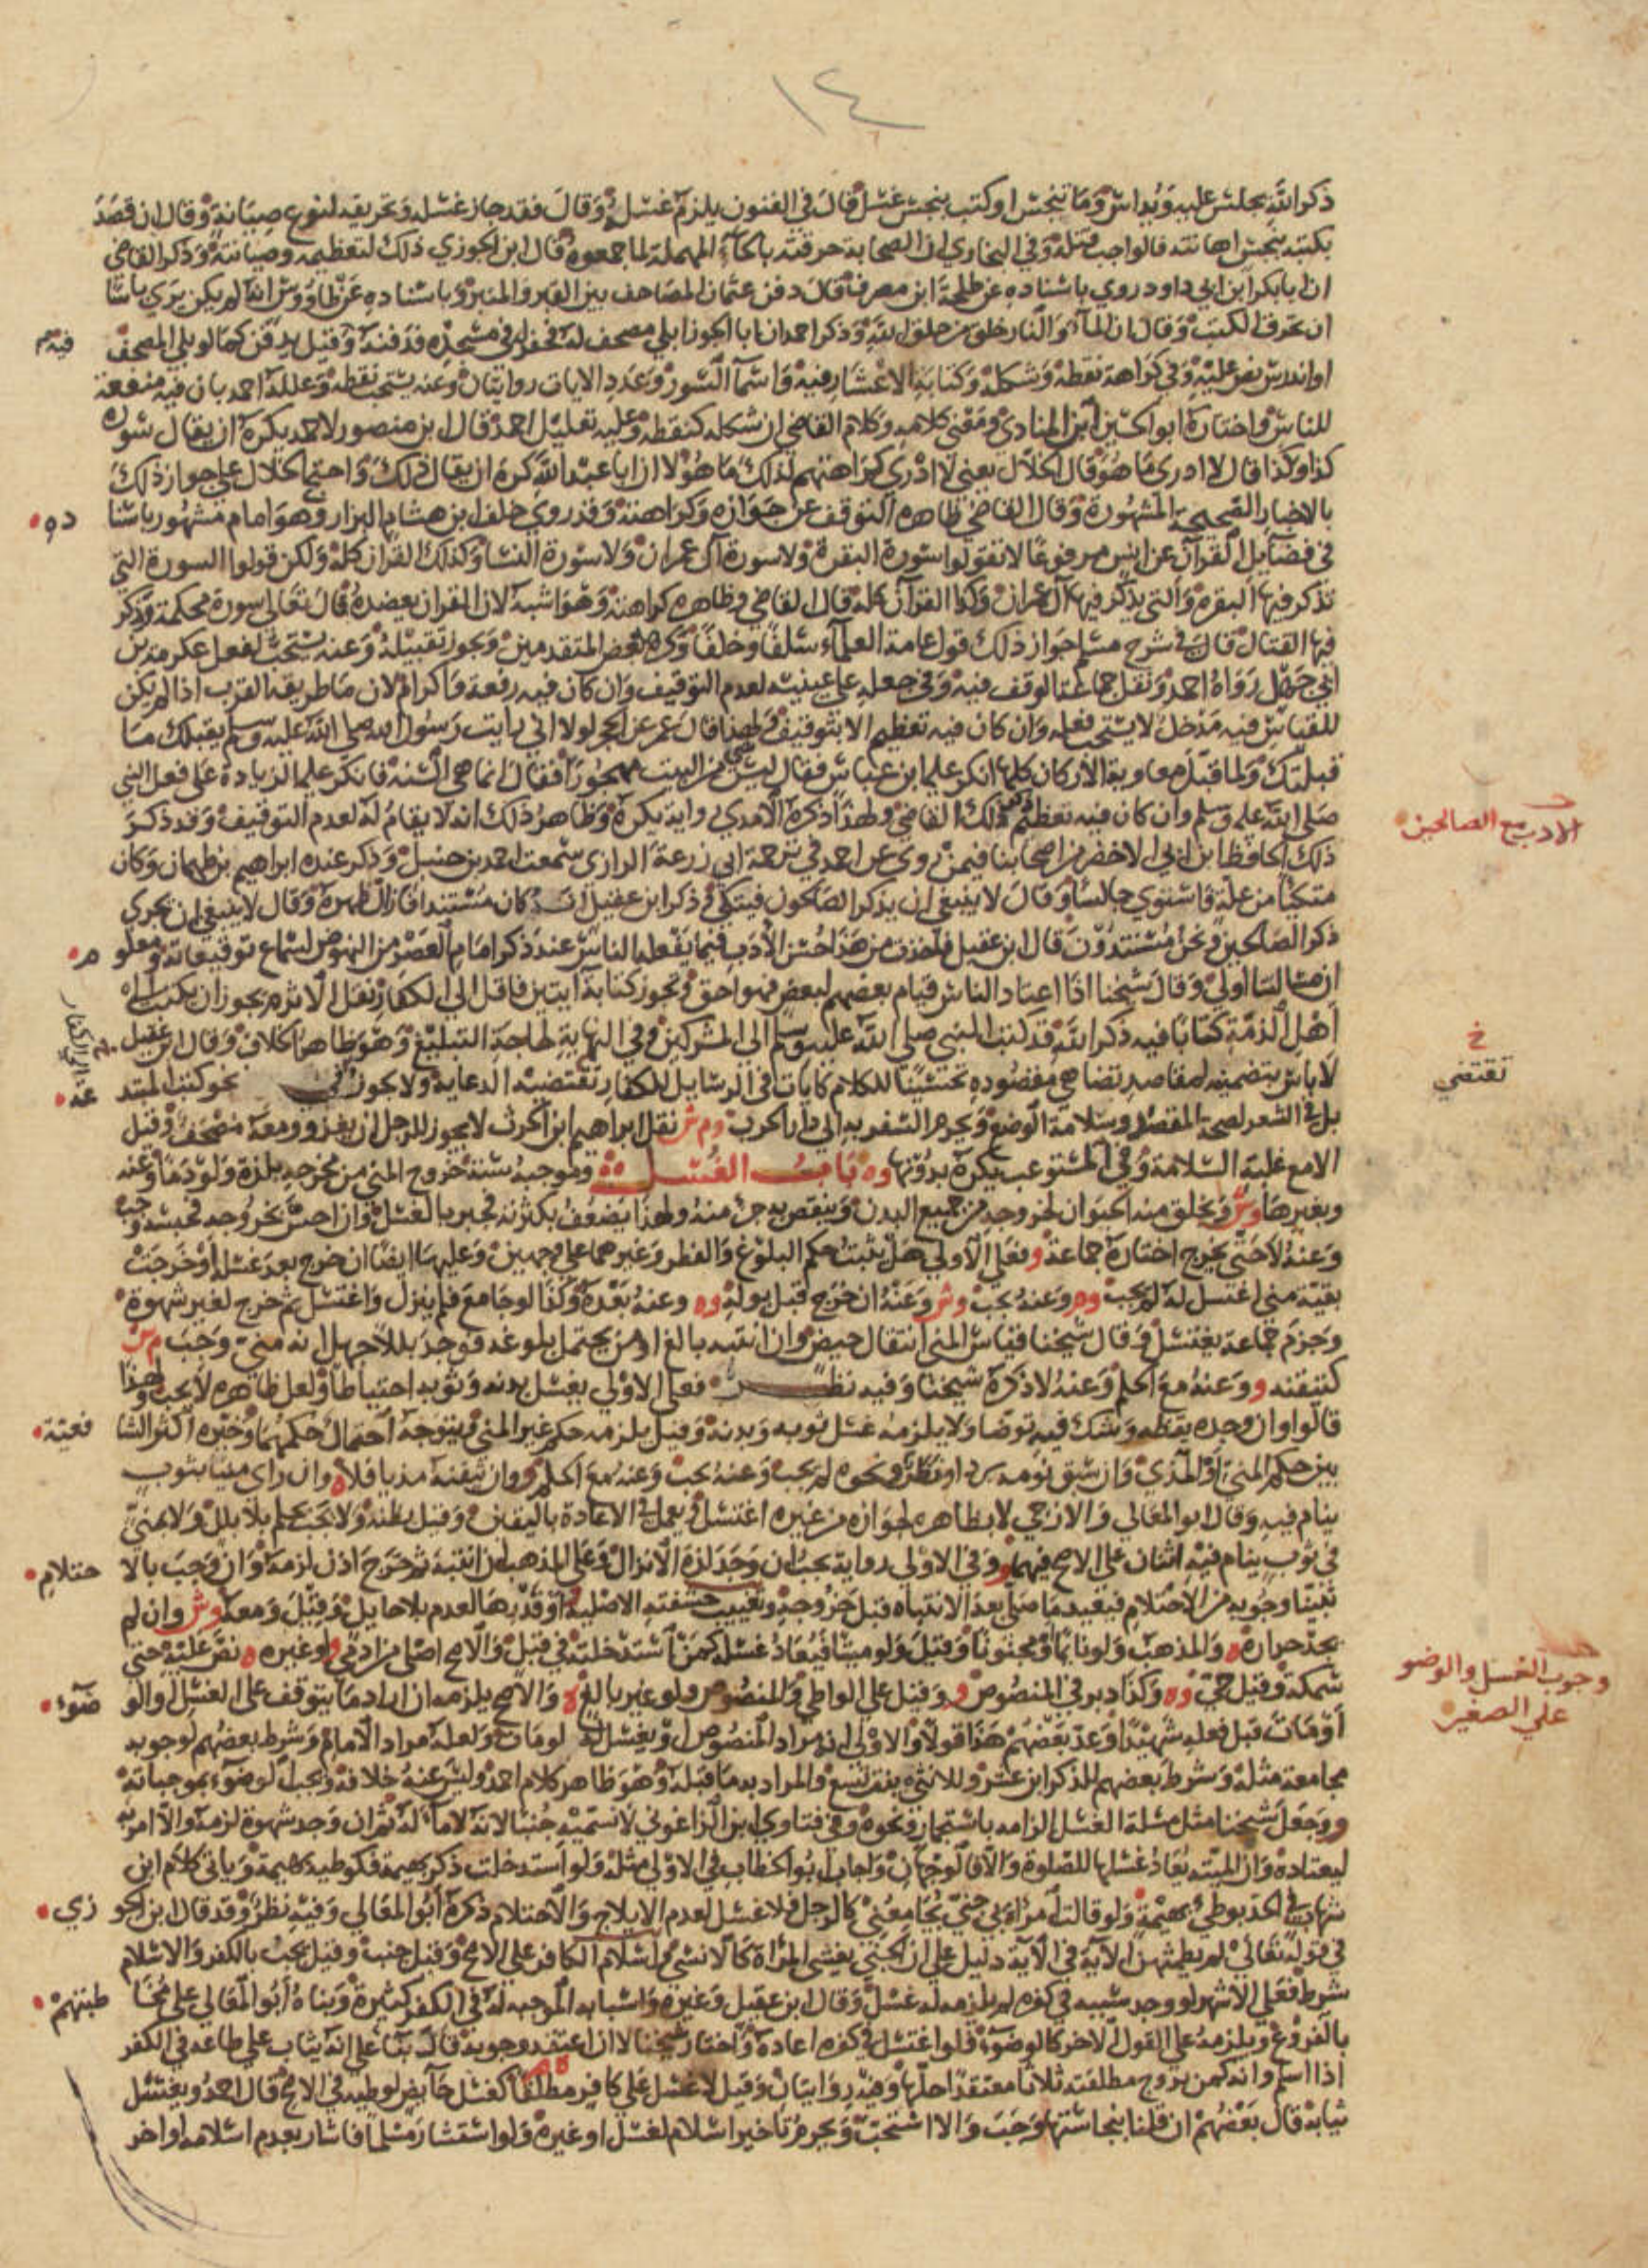 ١٤
ذكر الله بجلس عليه ويداس وما تنجس او كتب بنجس غسل قال في الفنون يلزم غسله وقال فقد جاز غسله وتحريقه لنوع صيانة وقال ان قصد
بكتبه بنجس اهانته فالواجب قتله وفي البخاري ان الصحابة حرقته بالحاء المهملة لما جمعوه قال ابن الجوزي ذلك لتعظيمه وصيانته وذكر القاضي
ان ابا بكر ابن ابي داود روي باسناده عن طلحة ابن مصرف قال دفن عثمان المصاحف بين القبر والمنبر وباسناده عن طاووس انه لم يكن يري باسا
ان تحرق الكتب وقال ان الماء والنار خلق من خلق الله وذكر احمد ان ابا الجوزا بلي مصحف له فحفر له في مسجده فدفنه وقيل يدفن كما لو بلي المصحف
او اندرس نص عليه وفي كراهة نقطه وشكله وكتابة الاعشار فيه واسماء السور وعدد الايات روايتان وعنه يستحب نقطه وعلله احمد بان فيه منفعة
للناس واختاره ابو الحسين ابن المنادي ومعني كلامه وكلام القاضي ان شكله كنقطه وعليه تعليل احمد قال ابن منصور لاحمد يكره ان يقال سورة
كذا وكذا قال لا ادري ما هو قال الخلال يعني لا ادري كراهتهم لذلك ما هو لا ان ابا عبد الله كره ان يقال ذلك واحتج الخلال علي جواز ذلك
بالاخبار الصحيحة المشهورة وقال القاضي ظاهره التوقف عن جوازه وكراهته وقد روي خلف بن هشام البزار وهو امام مشهور باسنا
ده
في فضائل القرآن عن انس مرفوعا لا تقولوا سورة البقرة ولا سورة آل عمران ولا سورة النسا وكذلك القران كله ولكن قولوا السورة التي
تذكر فيها البقرة والتي يذكر فيها آل عمران وكذا القرآن كله قال القاضي وظاهره كراهته وهو اشبه لان القران يعضده قال تعالى سورة محكمة وذكر
فيها القتال قال في شرح مسلم جواز ذلك قول عامة العلماء سلفا وخلفا وكرهه بعض المتقدمين ويجوز تقبيله وعنه يستحب لفعل عكرمة بن
ابي جهل رواه احمد ونقل جماعة الوقف فيه وفي جعله علي عينيه لعدم التوقيف وان كان فيه رفعة واكرام لان ما طريقه القرب اذا لم يكن
للقياس فيه مدخل لا يستحب فعله وان كان فيه تعظيم الا بتوقيف ولهذا قال عمر عن الحجر لولا اني رايت رسول الله صلى الله عليه وسلم يقبلك ما
قبلتك ولما قبل معاوية الاركان كلها انكر عليه ابن عباس فقال ليس شي من البيت مهجورا فقال انما هي السنة فانكر عليه الزيادة على فعل النبي
صلى الله عليه وسلم وان كان فيه تعظيم ذلك القاضي ولهذا ذكره الآمدي رواية يكره وظاهر ذلك انه لا يقام له لعدم التوقيف وقد ذكر
ذلك الحافظ ابن ابي الاخضر من اصحابنا فيمن روي عن احمد في ترجمة ابي زرعة الرازي سمعت احمد بن حنبل وذكر عنده ابراهيم بن طهمان وكان
متكيا من علة فاستوي جالسا وقال لا ينبغي ان يذكر الصالحون فيتكي وذكر ابن عقيل انه كان مستندا فازال ظهره وقال لا ينبغي ان يجري
ذكر الصالحين ونحن مستندون قال ابن عقيل فاخذت من هذا حسن الادب فيما يفعله الناس عند ذكر امام العصر من النهوض لسماع توقيعاته ومعلو
م
ان مسالتنا اولي وقال شيخنا اذا اعتاد الناس قيام بعضهم لبعض فهو احق وتجوز كتابة آيتين فاقل الي الكفار نقل الاثرم يجوز ان يكتب الي
اهل الذمة كتابا فيه ذكر الله قد كتب النبي صلي الله عليه وسلم الي المشركين وفي النهاية لحاجة التبليغ وهو ظاهر الخلاف وقال ابن عقيل
لا باس بتضمينه لمقاصد تضاهي مقصوده تحسينا للكلام كايات في الرسايل للكفار تقتضيه الدعاية ولا يجوز في نحو كتب المبتد
عة
بل في الشعر لصحة المقصد وسلامة الوضع ويحرم السفر به الي دار الحرب وم ش نقل ابراهيم ابن الحرث لا يجوز للرجل ان يغزو ومعه مصحف وقيل
الا مع غلبة السلامة وفي المستوعب يكره بدونها وه باب الغسل وموجبه ستة خروج المني من مخرجه بلذة ولو دما وعنه
وبغيرها وش ويخلق منه الحيوان لخروجه من جميع البدن وينقص به جزء منه ولهذا يضعف بكثرته فجبر بالغسل وان احس بخروجه فحبسه وجب
وعنه لا حتى يخرج اختاره جماعة و فعلي الاولي هل يثبت حكم البلوغ والفطر وغيرهما علي وجهين وعليهما ايضا ان خرج بعد غسله او خرجت
بقية مني اغتسل له لم يجب وم وعنه يجب وش وعنه ان خرج قبل بوله وه وعنه بعده وكذا لو جامع فلم ينزل واغتسل ثم خرج لغير شهوة
وجزم جماعة يغتسل وقال شيخنا قياس المني انتقال حيض وان انتبه بالغ او من يحتمل بلوغه فوجد بللا جهل انه مني وجب م ش
كتيقنه و وعنه مع الحلم وعنه لا ذكره شيخنا وفيه نظر فعلي الاولي يغسل بدنه وثوبه احتياطا ولعل ظاهره لا يجب ولهذا
قالوا وان وجده يقظة وشك فيه توضا ولا يلزمه غسل ثوبه وبدنه وقيل يلزمه حكم غير المني ويتوجه احتمال حكمهما وخيره اكثر الشا
فعية
بين حكم المني او المذي وان سبق نومه برد او نظر ونحوه لم يجب وعنه يجب وعنه مع الحلم و وان تيقنه مذيا فلا ه وان راي منيا بثوب
ينام فيه وقال ابو المعالي والازجي لا بظاهره لجوازه من غيره اغتسل ويعمل في الاعادة باليقين وقيل بظنه ولا يجب بحلم بلا بلل ولا بمني
في ثوب ينام فيه اثنان علي الاصح فيهما و وفي الاولي رواية يجب ان وجد لذة الانزال وعلي المذهب ان انتبه ثم خرج اذن لزمه وان وجب بالا
حتلام
تبينا وجوبه من الاحتلام فيعيد ما صلى بعد الانتباه قبل خروجه وتغييب حشفته الاصلية او قدرها لعدم بلا حايل وقيل ومعه وش وان لم
يجد حرارة ه والمذهب ولو نايما او مجنونا وقيل ولو ميتا فيعاد غسله كمن استدخلته في قبل والاصح اصلي من ادمي و او غيره ه نص عليه حتي
سمكة وقيل حي وه وكذا دبر في المنصوص و وقيل علي الواطي والمنصوص ولو غير بالغ ه والاصح يلزمه ان اراد ما يتوقف علي الغسل والو
ضوء
او مات قبل فعله شهيدا وعد بعضهم هذا قولا والاولي انه مراد المنصوص ويغسل له لو مات ولعله مراد الامام وشرط بعضهم لوجوبه
مجامعة مثله وشرط بعضهم للذكر ابن عشر وللانثي بنت تسع والمراد به ما قبله وهو ظاهر كلام احمد وليس عنه خلافه ويجب الوضوء بموجباته
و وجعل شيخنا مثل مسئلة الغسل الزامه باستجمار ونحوه وفي فتاوي ابن الزاغوني لا نسميه جنبا لانه لا ماء له ثم ان وجد شهوة لزمه والا امر به
ليعتاده وان الميتة يعاد غسلها للصلوة والا فالوجهان واجاب ابو الخطاب في الاولي مثله ولو استدخلت ذكر بهيمة فكوطيه بهيمة وياتي كلام ابن
شهاب في الحد بوطئ بهيمة ولو قالت امراة بي جني يجامعني كالرجل فلا غسل لعدم الايلاج والاحتلام ذكره ابو المعالي وفيه نظر وقد قال ابن الجو
زي
في قوله تعالى لم يطمثهن الآية في الآية دليل علي ان الجني يغشى المراة كالانسي واسلام الكافر علي الاصح وقيل جنب وقيل يجب بالكفر والاسلام
شرط فعلي الاشهر لو وجد سببه في كفره لم يلزمه له غسل وقال ابن عقيل وغيره واسبابه الموجبة له في الكفر كثيرة وبناه ابو المعالي علي مخا
طبتهم
بالفروع ويلزمه علي القول الاخر كالوضوء فلو اغتسل في كفره اعاده واختار شيخنا لا ان اعتقد وجوبه قال بناء علي انه يثاب علي طاعة في الكفر
اذا اسلم وانه كمن يزوج مطلقته ثلاثا معتقدا حلها وفيه روايتان وقيل لا غسل علي كافر مطلقا كغسل حايض لوطيه في الاصح قال احمد ويغتسل
ثيابه قال بعضهم ان قلنا بنجاستها وجب والا استحب ويحرم تاخير اسلام لغسل او غيره ولو استشار مسلما فاشار بعدم اسلامه او اخر
الادب مع الصالحين
خ
تقتضي
وجوب الغسل والوضو
علي الصغير